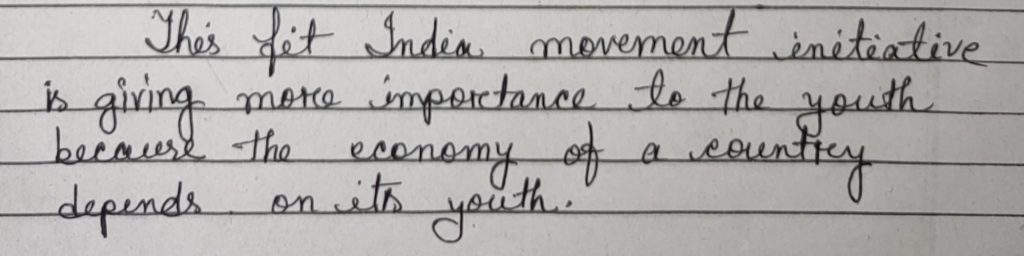 This fit India movement initiative
is giving more importance to the youth
because the economy of a country
depends on its youth.